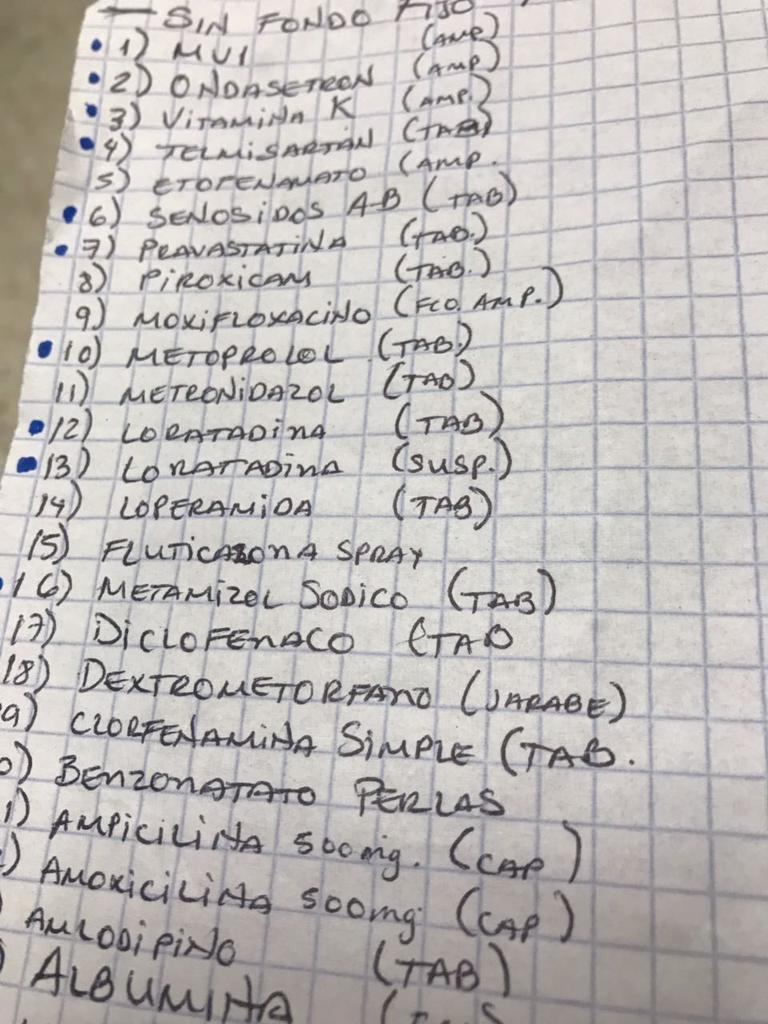 — SIN FONDO FIJO
• 1) MVI (AMP)
• 2) ONDASETRON (AMP)
• 3) VITAMINA K (AMP.)
• 4) TELMISARTAN (TAB)
5) ETOFENAMATO (AMP.
• 6) SENOSIDOS A-B (TAB)
• 7) PRAVASTATINA (TAB.)
8) PIROXICAM (TAB.)
9) MOXIFLOXACINO (FCO. AMP.)
• 10) METOPROLOL (TAB.)
11) METRONIDAZOL (TAB)
• 12) LORATADINA (TAB)
• 13) LORATADINA (SUSP.)
14) LOPERAMIDA (TAB)
15) FLUTICASONA SPRAY
• 16) METAMIZOL SODICO (TAB)
17) DICLOFENACO (TAB
18) DEXTROMETORFANO (JARABE)
9) CLORFENAMINA SIMPLE (TAB.
0) BENZONATATO PERLAS
1) AMPICILINA 500mg. (CAP)
) AMOXICILINA 500mg (CAP)
) AMLODIPINO (TAB)
) ALBUMINA